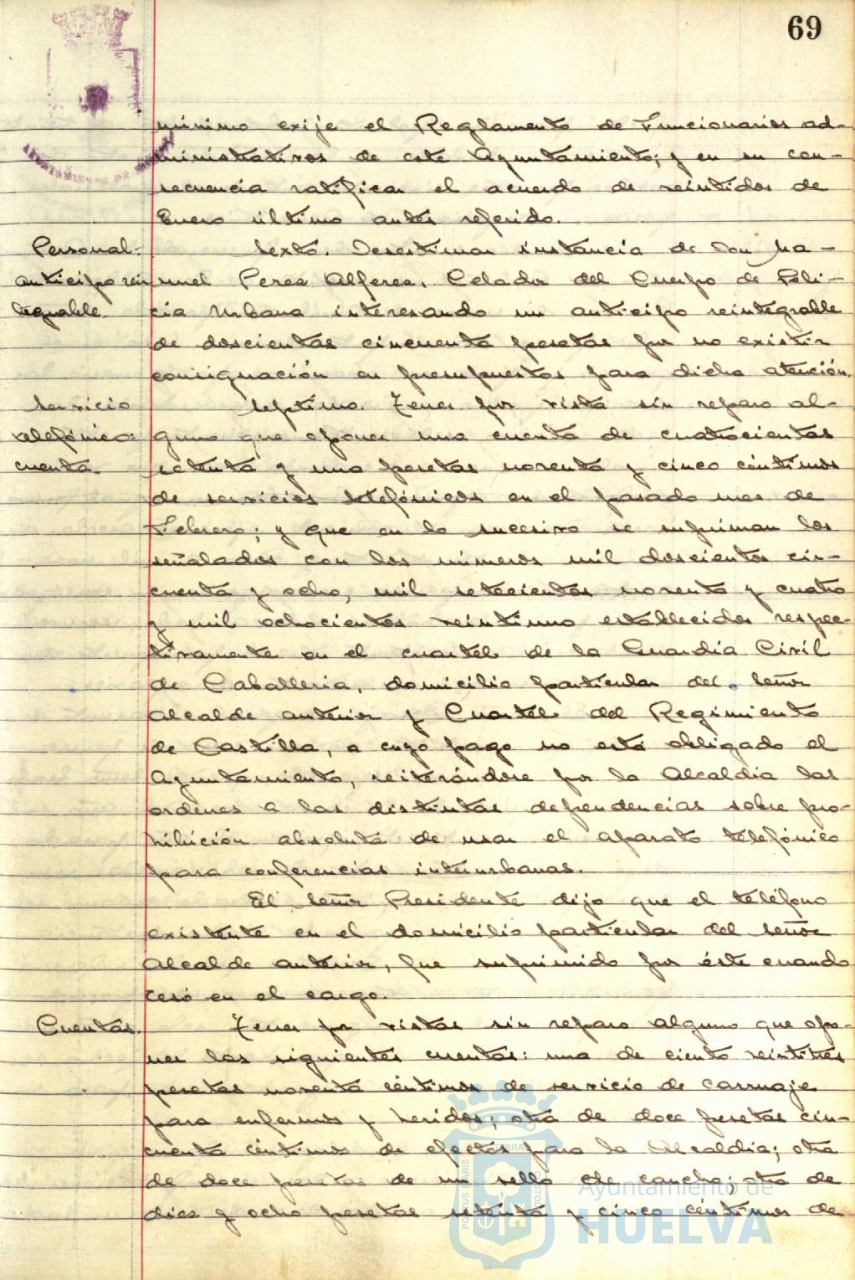 69
AYUNTAMIENTO DE HUELVA
mínimo exije el Reglamento de Funcionarios ad-
ministrativos de este Ayuntamiento; y en su con-
secuencia ratificar el acuerdo de veintidos de
Enero último antes referido.
Personal-
anticipo rein
tegrable.
Sexto. Desestimar instancia de Don Ma-
nuel Perea Alferea, Celador del Cuerpo de Poli-
cia Urbana interesando un anticipo reintegrable
de doscientas cincuenta pesetas por no existir
consignación en presupuestos para dicha atención.
Servicio
telefónico:
cuenta.
Septimo. Tener por vista sin reparo al-
guno que oponer una cuenta de cuatrocientas
setenta y una pesetas noventa y cinco céntimos
de servicios telefónicos en el pasado mes de
Febrero; y que en lo sucesivo se supriman los
señalados con los números mil doscientos cin-
cuenta y ocho, mil setecientos noventa y cuatro
y mil ochocientos veintiuno establecidos respec-
tivamente en el cuartel de la Guardia Civil
de Caballeria, domicilio particular del Señor
Alcalde anterior y Cuartel del Regimiento
de Castilla, a cuyo pago no está obligado el
Ayuntamiento, reiterándose por la Alcaldia las
ordenes a las distintas dependencias sobre pro-
hibición absoluta de usar el aparato telefónico
para conferencias interurbanas.
El Señor Presidente dijo que el teléfono
existente en el domicilio particular del Señor
Alcalde anterior, fue suprimido por éste cuando
cesó en el cargo.
Cuentas.
Tener por vistas sin reparo alguno que opo-
ner las siguientes cuentas: una de ciento veintitres
pesetas noventa céntimos de servicio de carruaje
para enfermos y heridos; otra de doce pesetas cin-
cuenta céntimos de efectos para la Alcaldia; otra
de doce pesetas de un sello de caucho; otra de
diez y ocho pesetas setenta y cinco céntimos de
Ayuntamiento de
HUELVA